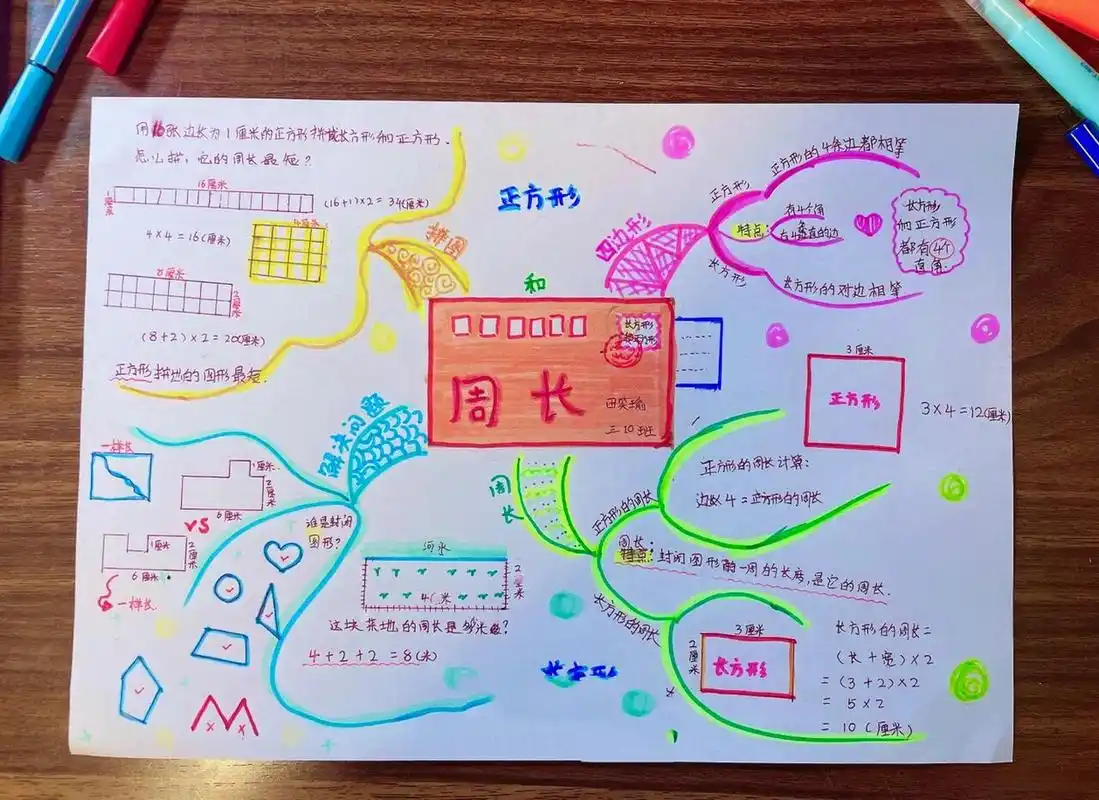 用16张边长为1厘米的正方形拼成长方形和正方形.
怎么拼,它的周长最短?
16厘米
1厘米
(16+1)×2=34(厘米)
4×4=16(厘米)
4厘米
8厘米
2厘米
(8+2)×2=20(厘米)
正方形拼出的图形最短.
拼图
正方形
和
长方形
周长
田笑瑜
三10班
四边形
正方形
正方形的4条边都相等
特点:
有4个角
有4条直的边
长方形
长方形的对边相等
长方形
和正方形
都有4个
直角.
3厘米
正方形
3×4=12(厘米)
周长
正方形的周长
正方形的周长计算:
边长×4=正方形的周长
周长
特点:封闭图形一周的长度,是它的周长.
长方形的周长
3厘米
2厘米
长方形
长方形的周长=
(长+宽)×2
=(3+2)×2
=5×2
=10(厘米)
解决问题
一样长
1厘米
2厘米
6厘米
VS
1厘米
2厘米
6厘米
一样长
谁是封闭
图形?
河水
4米
这块菜地的周长是多少米?
4+2+2=8(米)
长方形